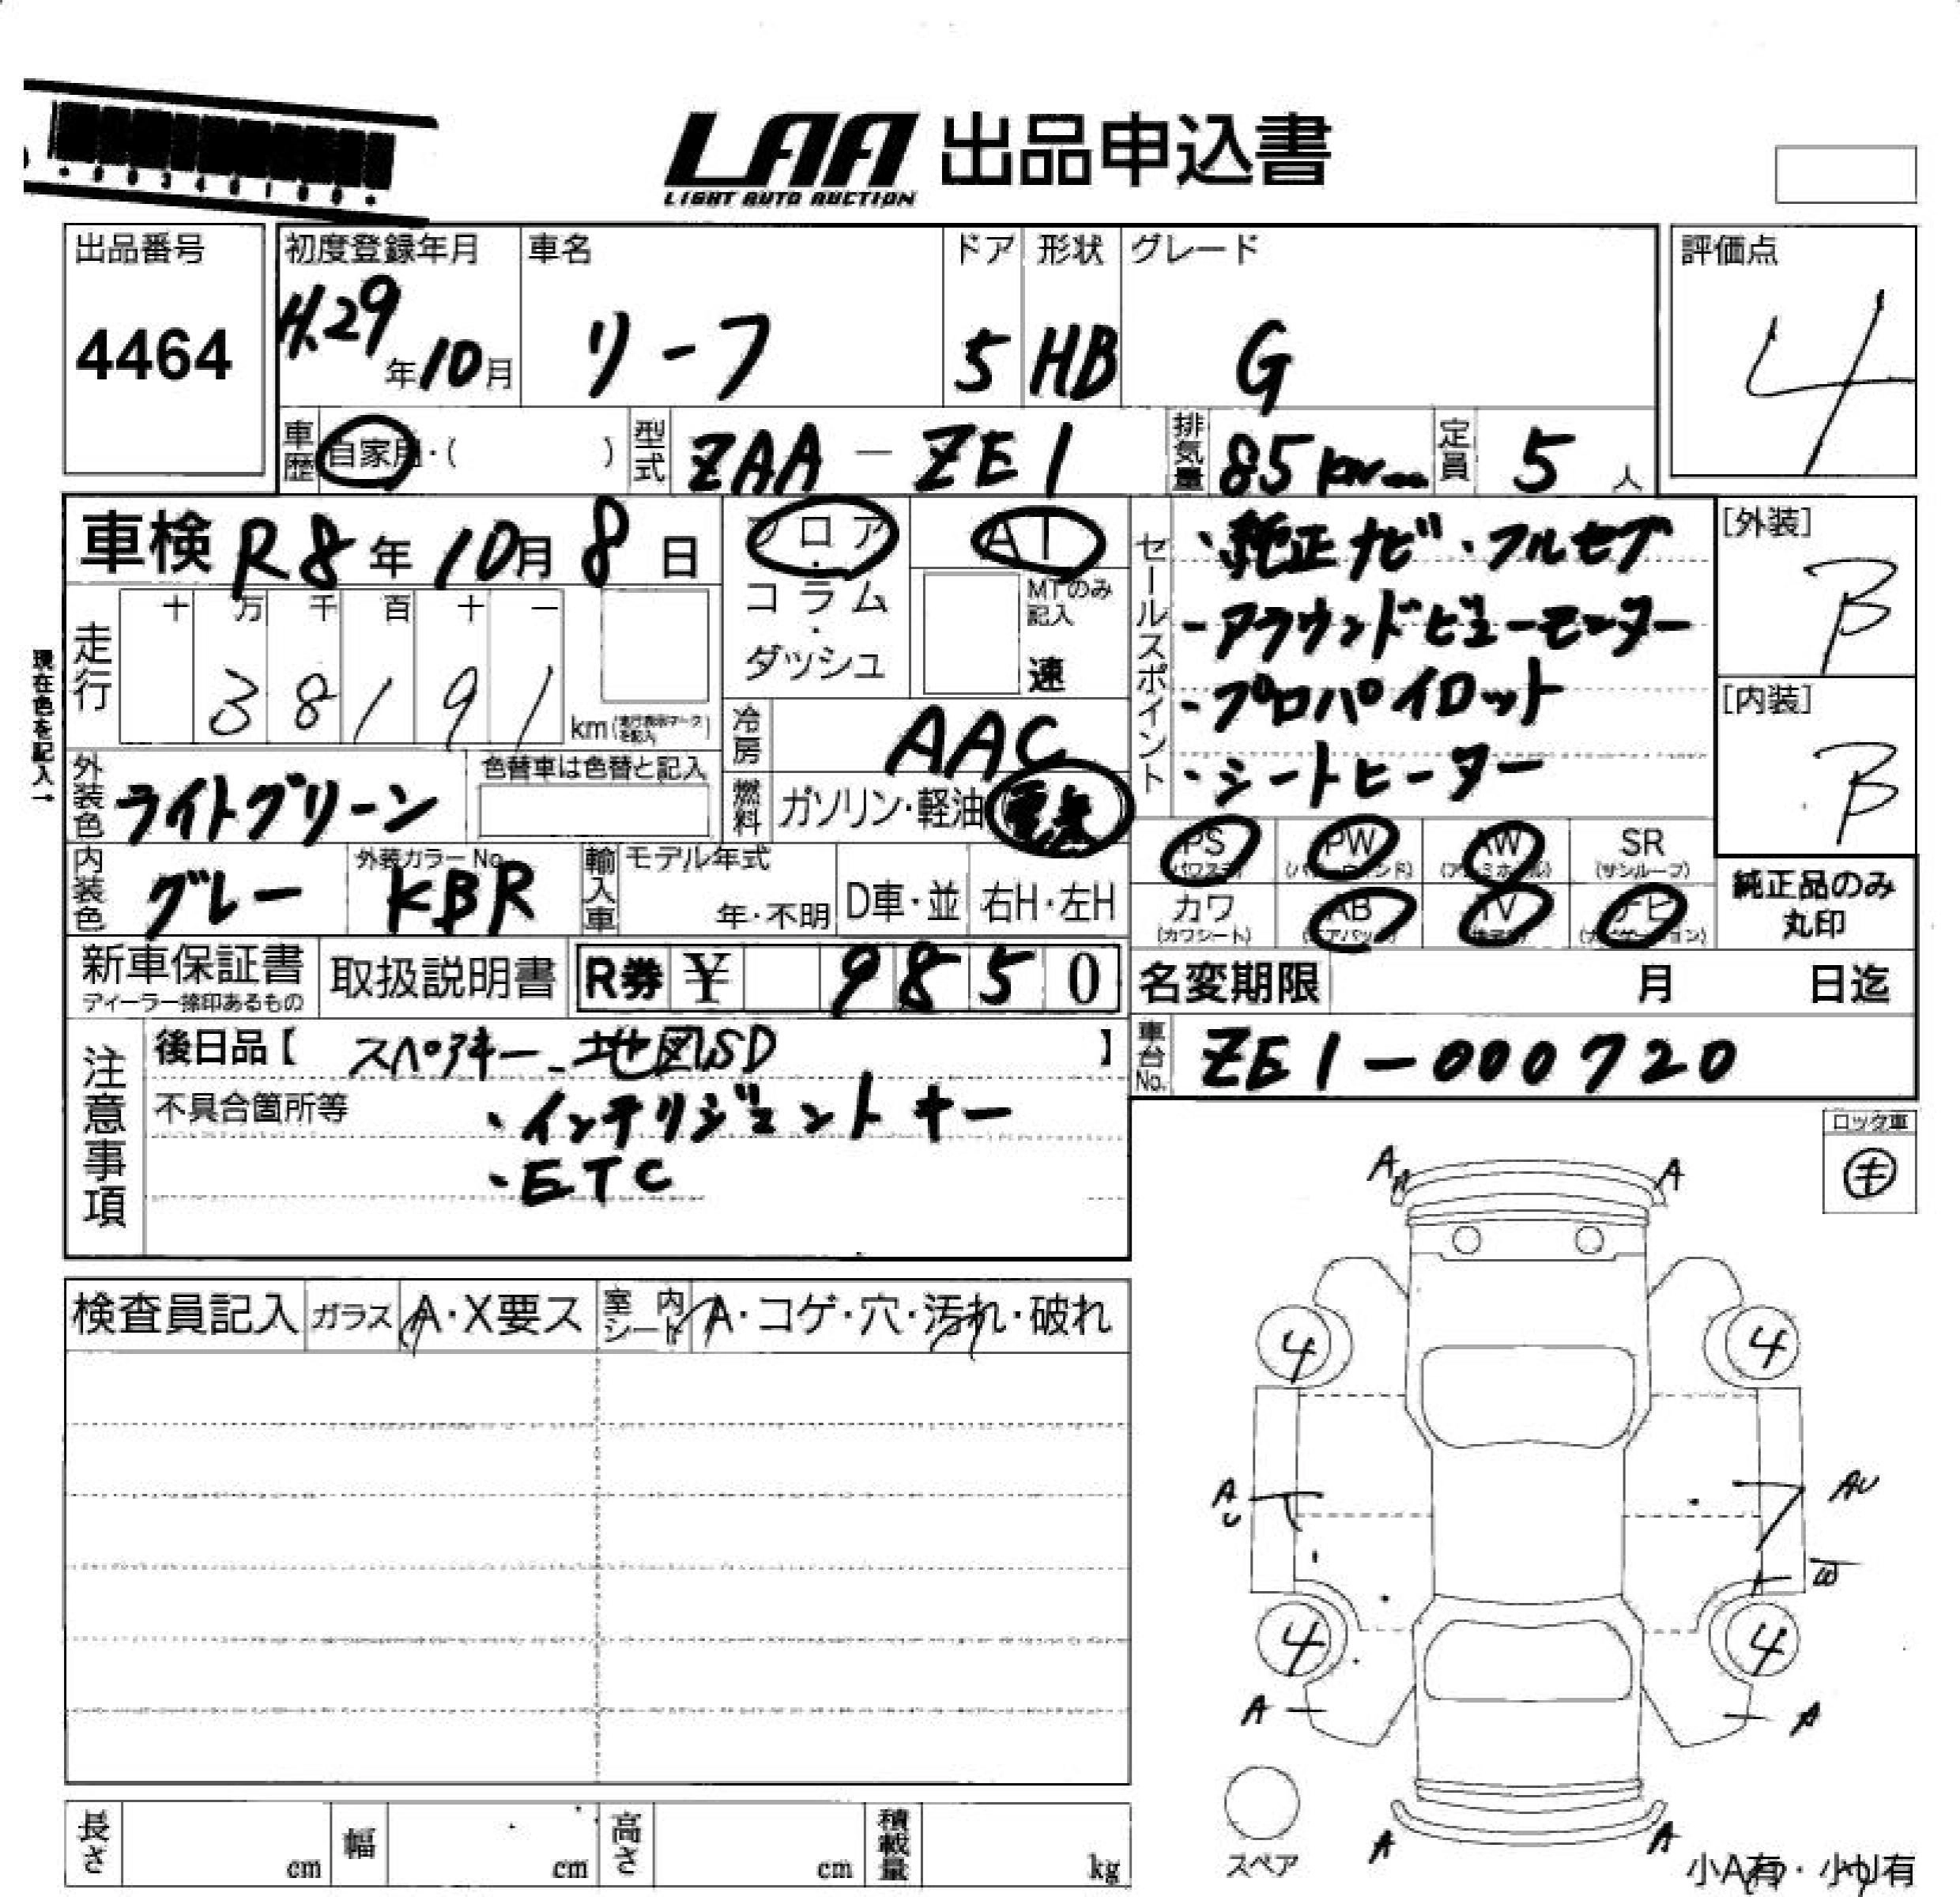 LAA 出品申込書
LIGHT AUTO AUCTION
出品番号
4464
初度登録年月
H.29年10月
車名
リーフ
ドア
5
形状
HB
グレード
G
評価点
4
車歴 自家用・( )
型式 ZAA-ZE1
排気量 85kw
定員 5人
車検 R8年10月8日
フロア・コラム・ダッシュ
AT
MTのみ記入
速
セールスポイント
・純正ナビ・フルセグ
-アラウンドビューモニター
-プロパイロット
・シートヒーター
[外装]
B
[内装]
B
現在色を記入→
走行
十 万 千 百 十 一
3 8 1 9 1
km(走行表示マークを記入)
冷房 AAC
燃料 ガソリン・軽油 電気
外装色 ライトグリーン
色替車は色替と記入
内装色 グレー
外装カラーNo. KBR
輸入車
モデル年式
年・不明
D車・並
右H・左H
PS (パワステ)
PW (パワーウィンド)
AW (アルミホイール)
SR (サンルーフ)
カワ (カワシート)
AB (エアバック)
TV
ナビ (ナビゲーション)
純正品のみ
丸印
新車保証書
ディーラー捺印あるもの
取扱説明書
R券 ¥ 9850
名変期限 月 日迄
注意事項
後日品【 スペアキー 地図SD 】
不具合箇所等
・インテリジェントキー
・ETC
車台No. ZE1-000720
ロック車
キ
検査員記入
ガラス A・X要ス
室内シート A・コゲ・穴・汚れ・破れ
A A
4 4
AU AU
W
4 4
A A
A A
スペア
小A有・小U有
長さ cm
幅 cm
高さ cm
積載量 kg